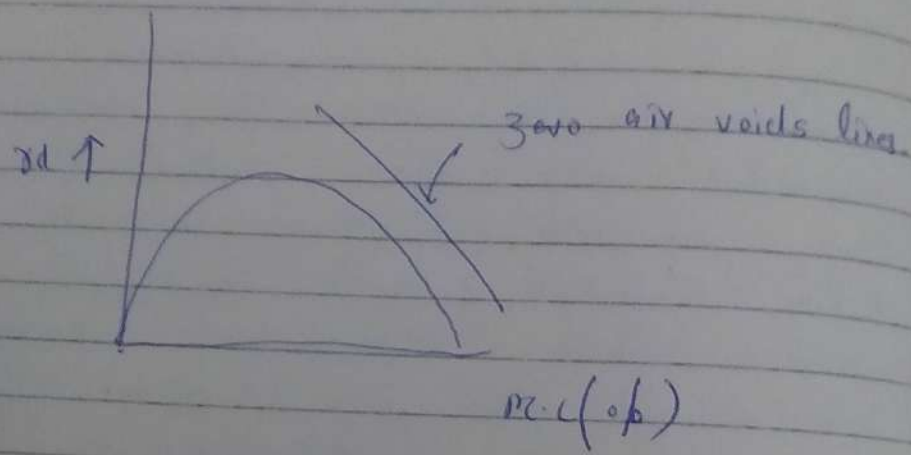 Zero air voids line
γd ↑
M.C (%)